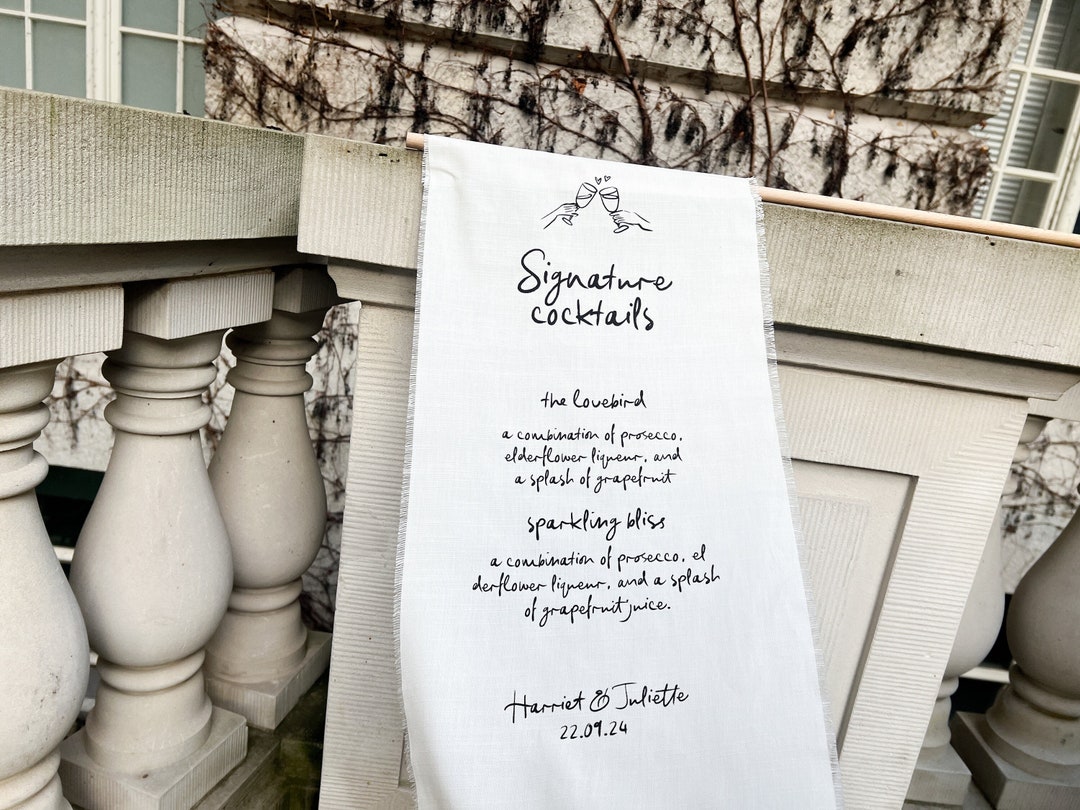 Signature
cocktails
the lovebird
a combination of prosecco,
elderflower liqueur, and
a splash of grapefruit
sparkling bliss
a combination of prosecco, el
derflower liqueur, and a splash
of grapefruit juice.
Harriet & Juliette
22.09.24